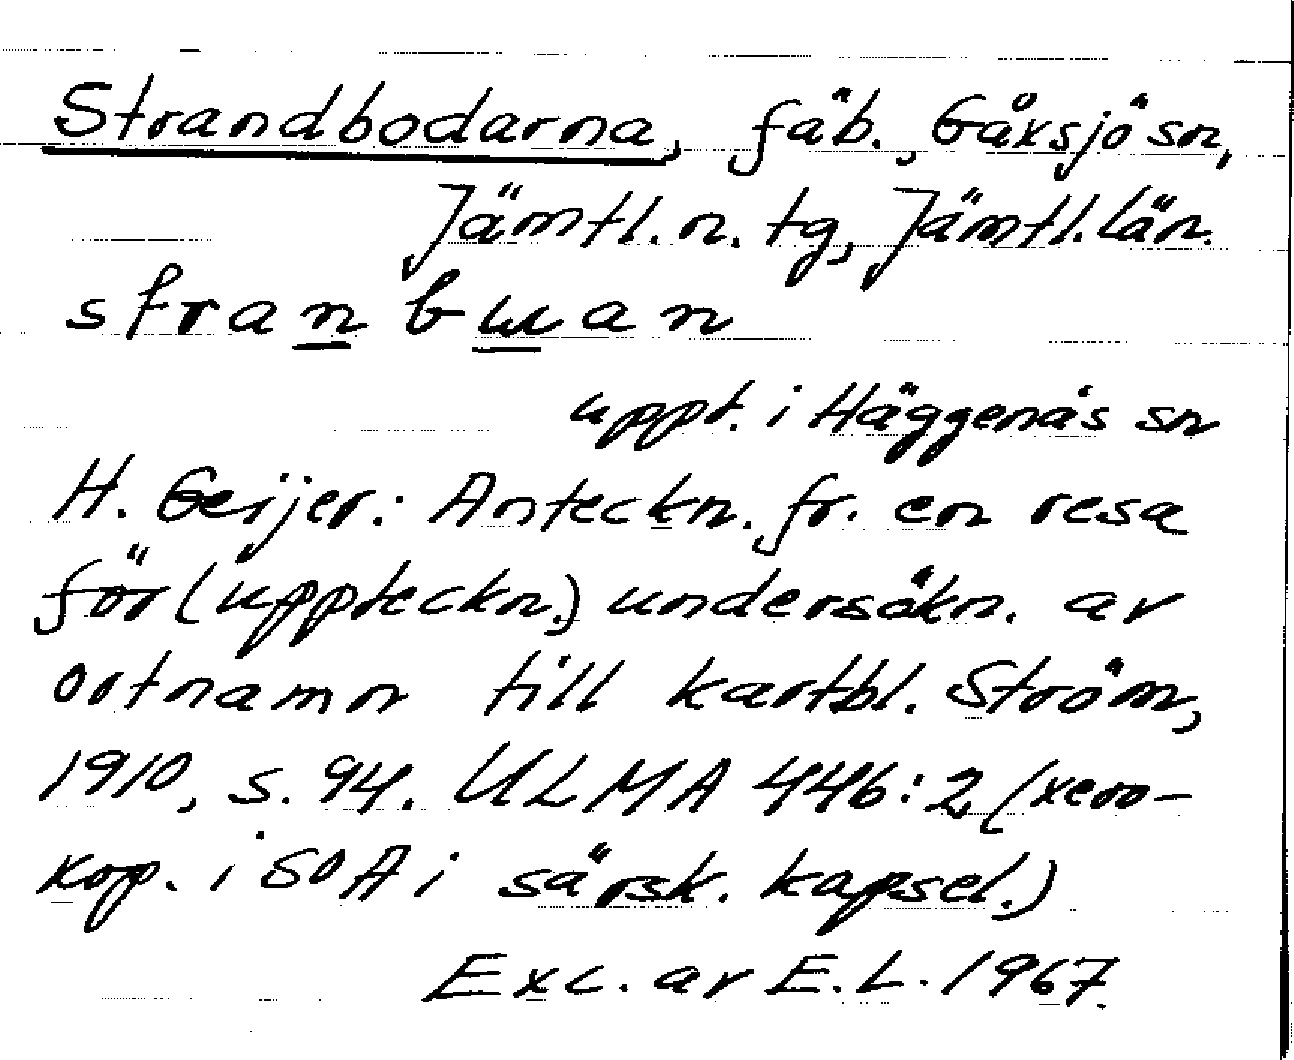 Strandbodarna, fäb., Gåxsjö sn,
Jämtl. n. tg, Jämtl. län.
stranbuan
uppt. i Häggenås sn
H. Geijer: Anteckn. fr. en resa
för (uppteckn.) undersökn. av
ortnamn till kartbl. Ström,
1910, s. 94. ULMA 446:2 (xero-
kop. i SOA i särsk. kapsel.)
Exc. av E.L. 1967